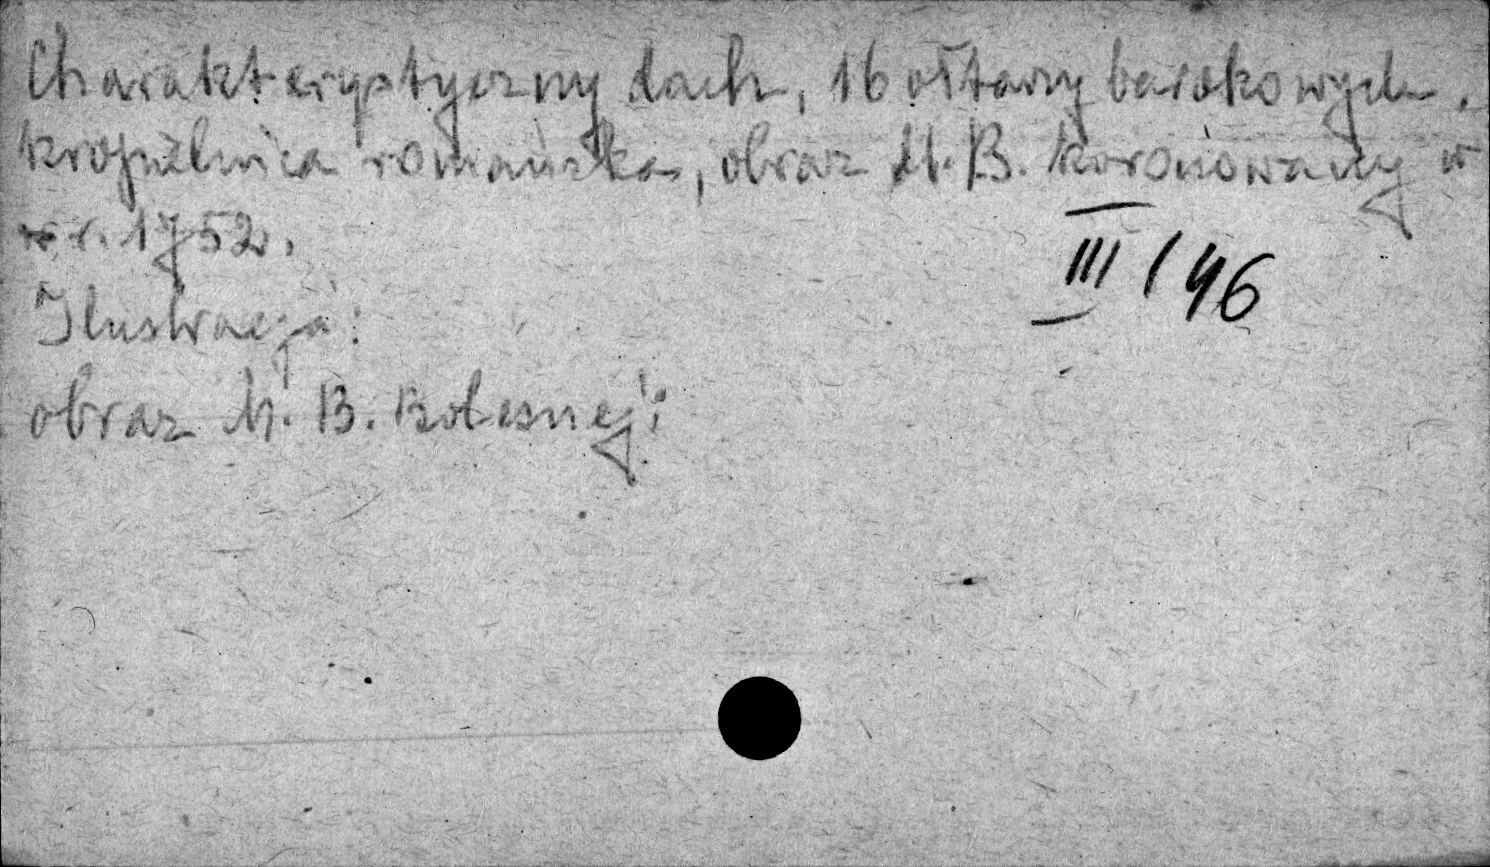 Charakterystyczny dach, 16 ołtarzy barokowych,
kropielnica romańska, obraz M. B. koronowany w
r. 1752.
III / 46
Ilustracja:
obraz M. B. Bolesnej;